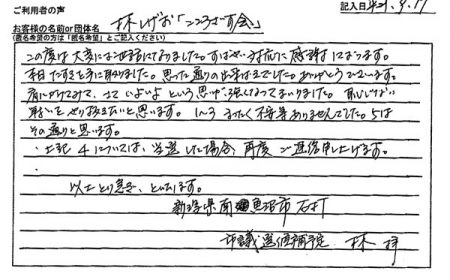 ご利用者の声
記入日 H21.9.17
お客様の名前or団体名
(匿名希望の方は「匿名希望」とご記入ください)
林しげお「こころざす会」
この度は大変にお世話になりました。すばやい対応に感謝しております。
本日たすきを手に取りました。思った通りの出来ばえでした。ありがとうございます。
肩にかけてみて、さていよいよという思いが強くなってまいりました。恥じない
戦いをやり抜きたいと思います。1〜3 まったく不備ありませんでした。5は
その通りと思います。
・上記4については、当選した場合、再度ご返信申し上げます。
以上とり急ぎ、といたします。
新潟県南魚沼市石打
市議選候補予定 林